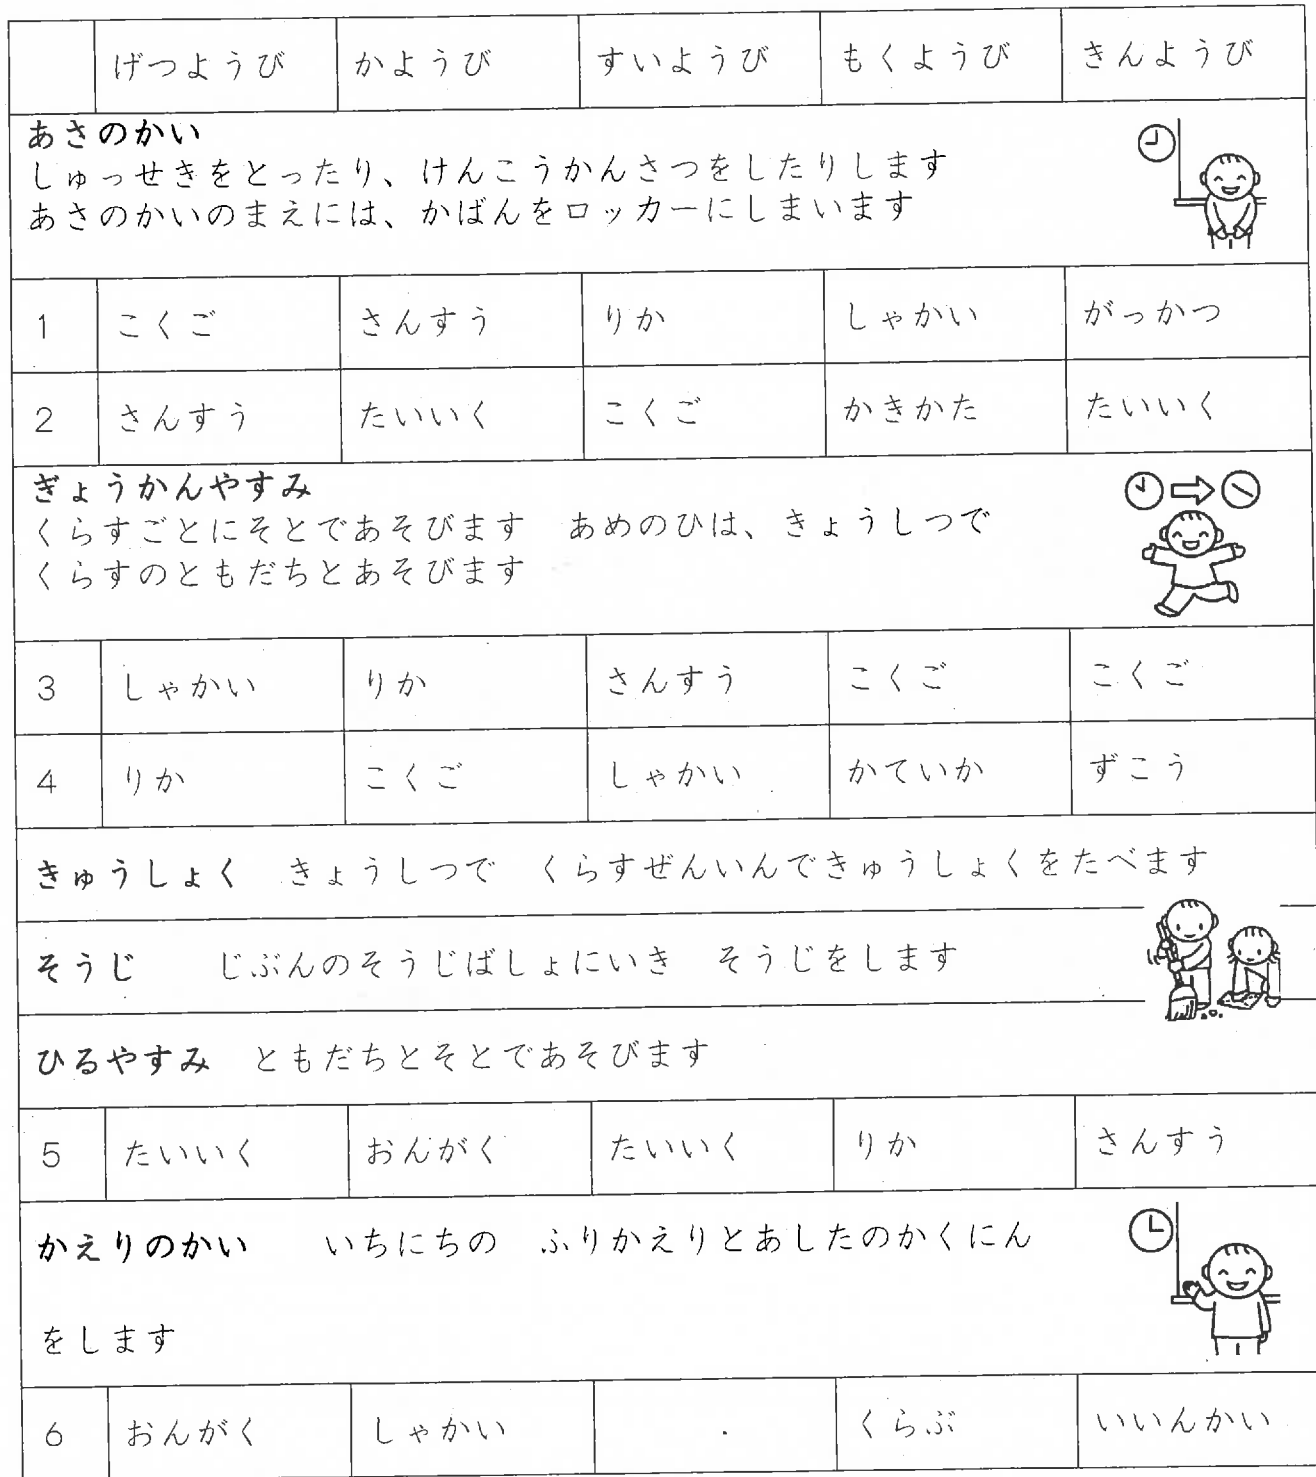 げつようび かようび すいようび もくようび きんようび
あさのかい
しゅっせきをとったり、けんこうかんさつをしたりします
あさのかいのまえには、かばんをロッカーにしまいます
1 こくご さんすう りか しゃかい がっかつ
2 さんすう たいいく こくご かきかた たいいく
ぎょうかんやすみ
くらすごとにそとであそびます　あめのひは、きょうしつで
くらすのともだちとあそびます
3 しゃかい りか さんすう こくご こくご
4 りか こくご しゃかい かていか ずこう
きゅうしょく　きょうしつで　くらすぜんいんできゅうしょくをたべます
そうじ　じぶんのそうじばしょにいき　そうじをします
ひるやすみ　ともだちとそとであそびます
5 たいいく おんがく たいいく りか さんすう
かえりのかい　いちにちの　ふりかえりとあしたのかくにん
をします
6 おんがく しゃかい くらぶ いいんかい